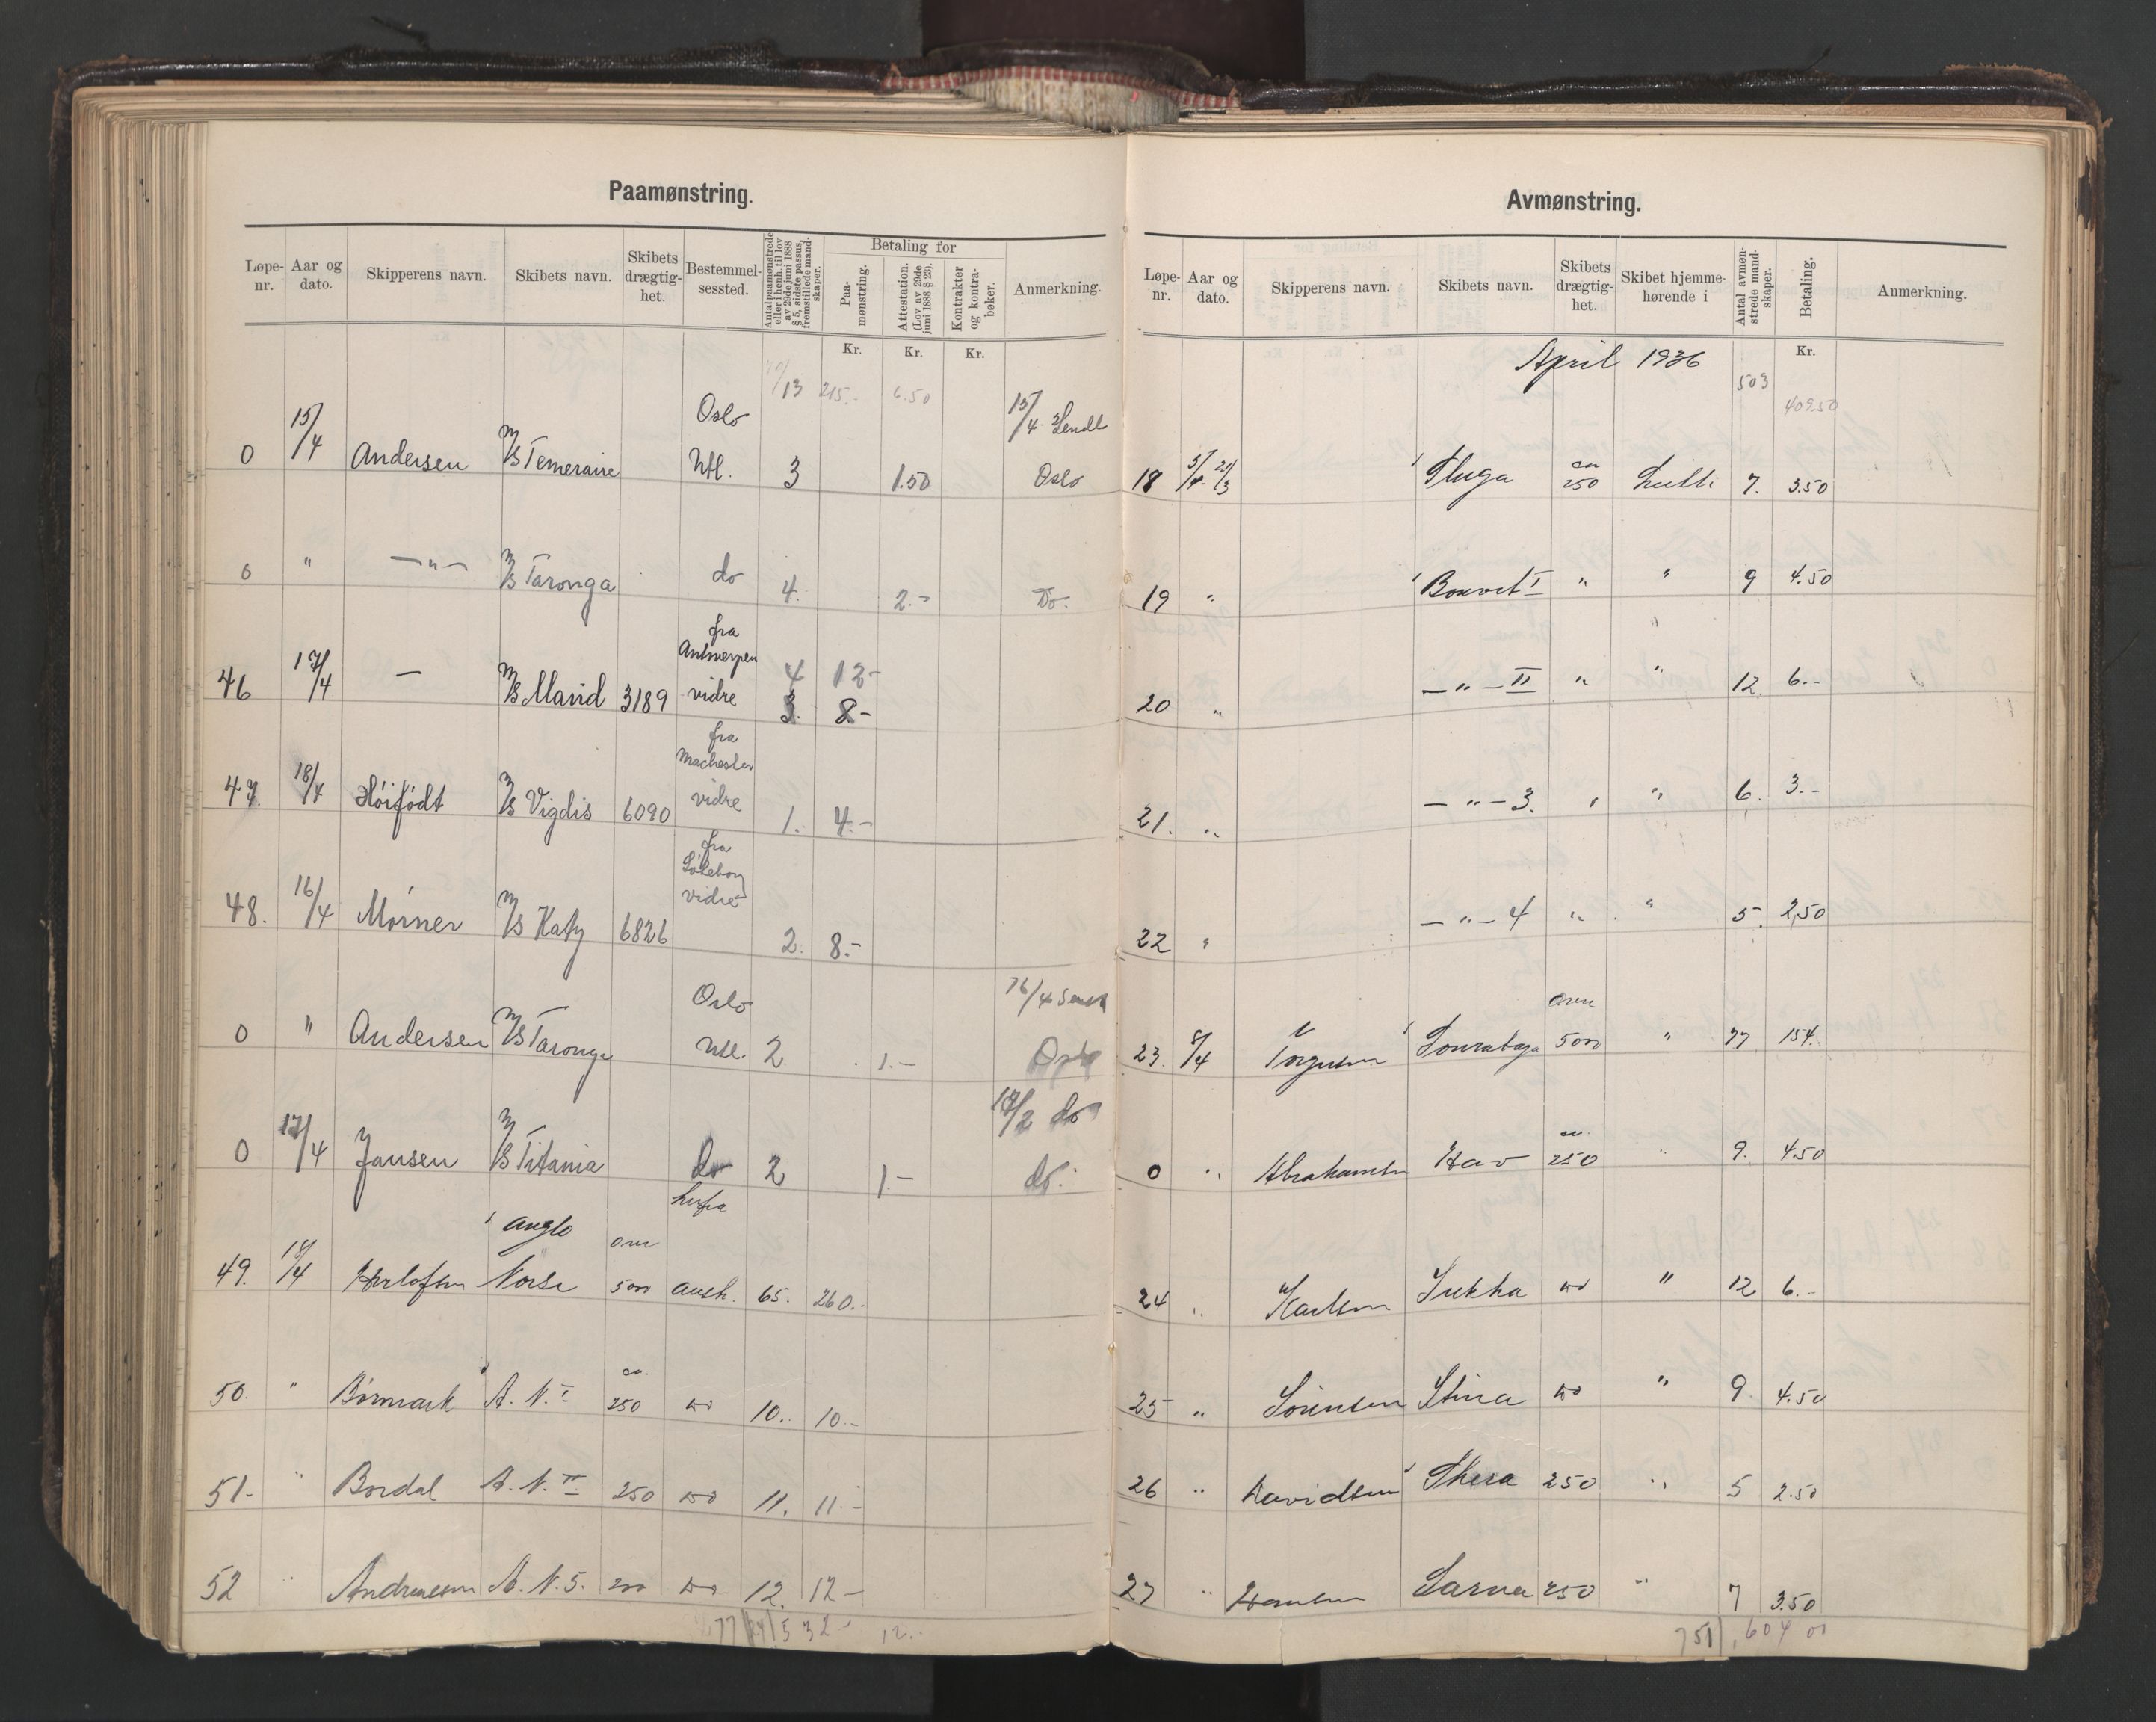 Paamønstring.
Løpe-nr. Aar og dato. Skipperens navn. Skibets navn. Skibets drægtig-het. Bestemmel-sessted. Antal paamønstrede eller i henh. til lov av 29de juni 1888 § 5, sidste passus, fremstillede mand-skaper. Betaling for Paa-mønstring. Attestation. (Lov av 29de juni 1888 § 23). Kontrakter og kontra-bøker. Anmerkning.
Kr. Kr. Kr.
13 215.- 6.50
0 15/4 Andersen M/S Temeraire Oslo Utl. 3 1.50 15/4 Sendt Oslo
0 " — " — M/S Taronga do 4. 2.- Do.
46 17/4 — M/S Marid 3189 fra Antwerpen vidre 4 12- 3. 8-
47. 18/4 Höifödt M/S Vigdis 6090 fra Machester vidre 1. 4.-
48. 16/4 Mörner M/S Katy 6826 fra Göteborg vidre 2. 8.-
0 " Andersen M/S Taronga Oslo Utl. 2 1.- 16/4 Sendt Oslo
0 17/4 Jansen M/S Titania do 2 1.- 17/2 do do.
49. 18/4 Herlofsen Anglo Norse over 5000 65. 260.-
50. " Börmark A. N. I ca. 250 do 10. 10.-
51- " Bordal A. N. II 250 do 11. 11.-
52 " Andreassen A. N. 5. 200 do 12. 12-
532.- 12.-
Avmønstring.
Løpe-nr. Aar og dato. Skipperens navn. Skibets navn. Skibets drægtig-het. Skibet hjemme-hørende i Antal avmøn-strede mand-skaper. Betaling. Anmerkning.
Kr.
April 1936 503 409.50
18 5/4 - 21/3 ca 250 7. 3.50
19 " Bouvet I " " 9 4.50
20 " — " — II " " 12 6.-
21. " — " — 3. " " 6. 3.-
22 " — " — 4 " " 5. 2,50
23. 8/4 Torgersen Sourabaya over 5000 " 77 154.
0 " Abrahamsen Hav ca. 250 " 9. 4.50
24 " Karlsen Sukha do " 12 6.-
25 " Sörensen Stina do " 9. 4.50
26 " Davidsen Thera 250 " 5 2.50
27 " Sarna 250 " 7 3.50
751 604 00